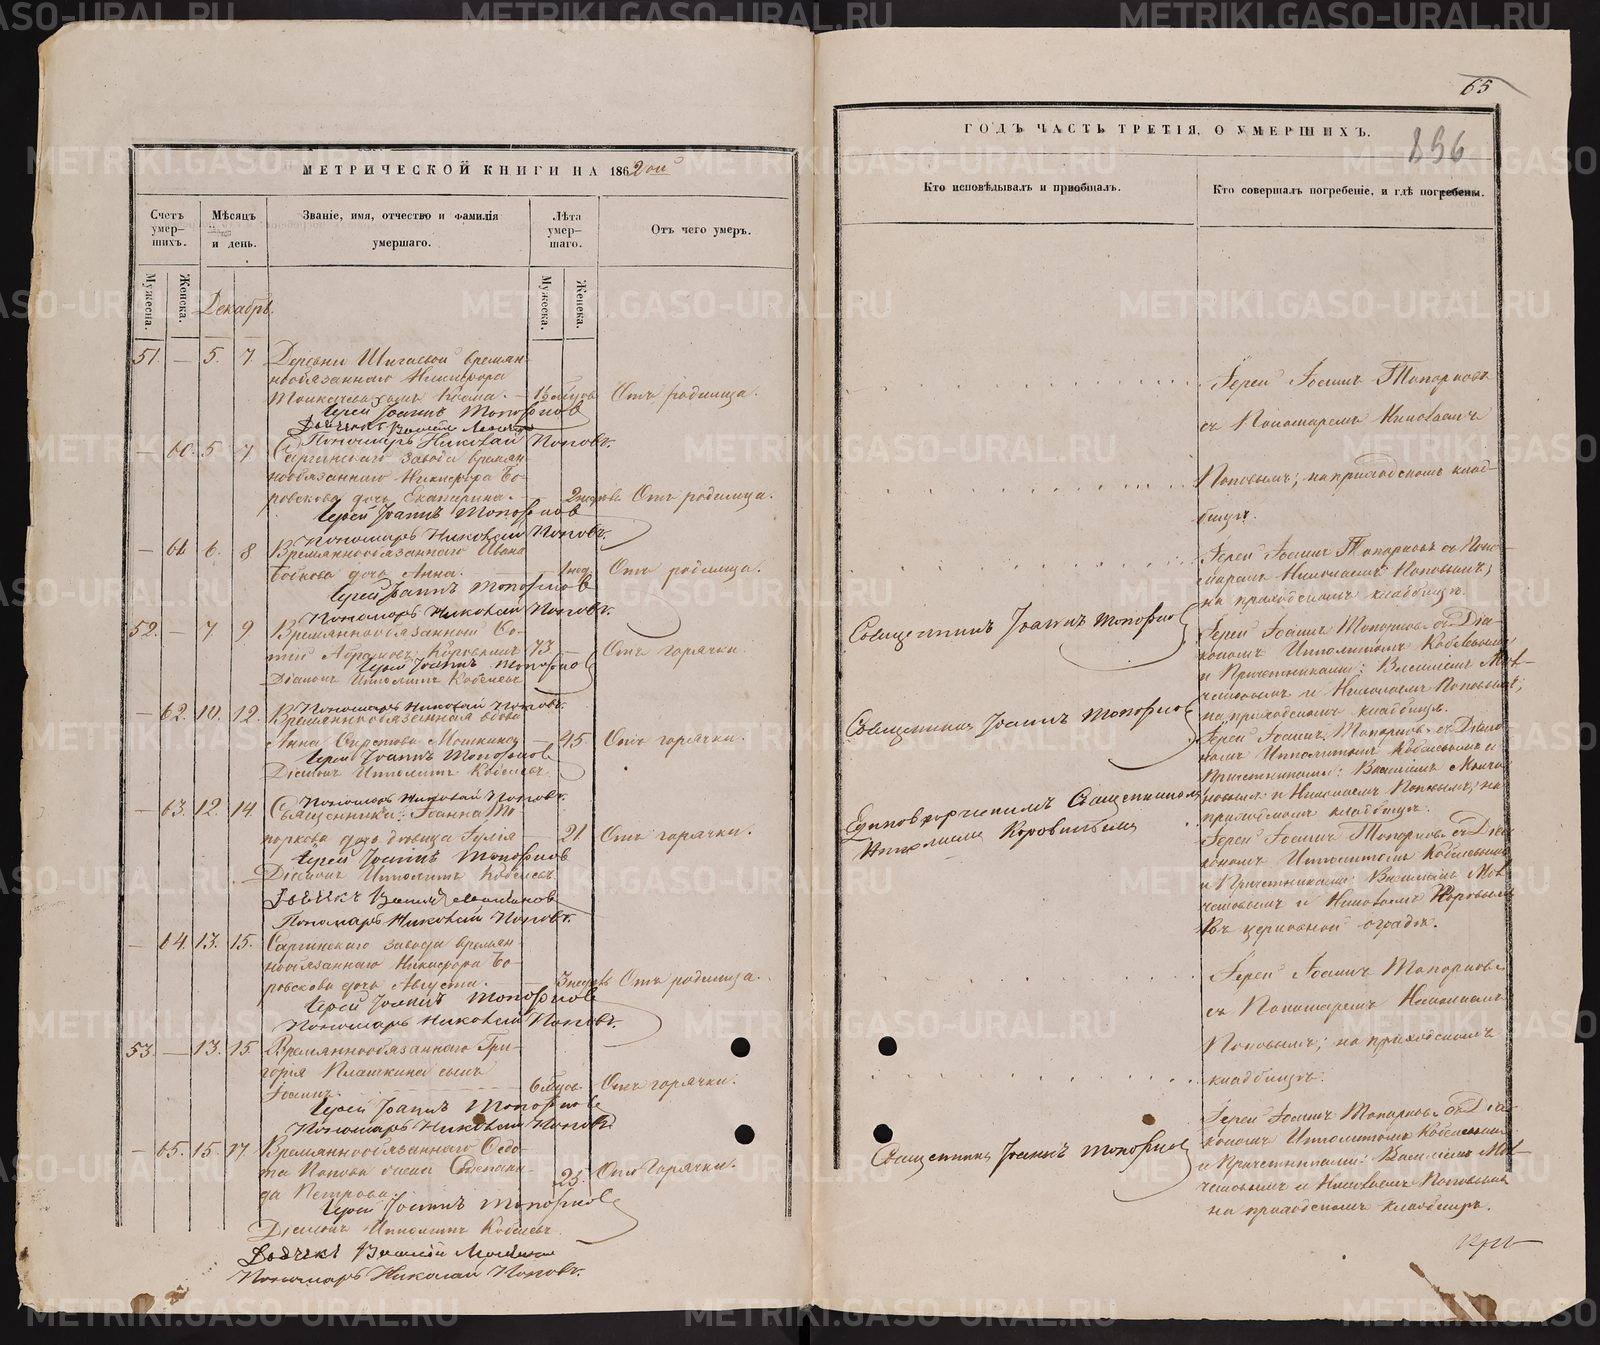 МЕТРИЧЕСКОЙ КНИГИ НА 1862 ой
Счетъ умер-шихъ.
Мѣсяцъ и день.
Званіе, имя, отчество и фамилія умершаго.
Лѣта умер-шаго.
Отъ чего умеръ.
Мужеска.
Женска.
Мужеска.
Женска.
Декабрь.
51. — 5. 7 Деревни Шигаевой времян-
нообязаннаго Никифора
сынъ Козма. Отъ родимца.
Іерей Іоаннъ Топорковъ
Пономарь Николай Поповъ.
— 60. 5 7 Саргинскаго завода времян-
нообязаннаго Никифора Бо-
ровскова дочь Екатерина. — 2 недѣль Отъ родимца.
Іерей Іоаннъ Топорковъ
Пономарь Николай Поповъ.
— 61 6. 8 Времяннообязаннаго Ивана
дочь Анна. — 1 нед. Отъ родимца.
Іерей Іоаннъ Топорковъ
Пономарь Николай Поповъ.
52. — 7 9 Времяннообязанной
73. — Отъ горячки.
Іерей Іоаннъ Топорковъ
Діаконъ Ипполитъ Кобелевъ
Пономарь Николай Поповъ.
— 62. 10. 12. Времяннообязанная вдова
Анна — 45 Отъ горячки.
Іерей Іоаннъ Топорковъ
Діаконъ Ипполитъ Кобелевъ
Пономарь Николай Поповъ.
— 63. 12. 14. Священника Іоанна То-
поркова дочь дѣвица Іулія — 21. Отъ горячки.
Іерей Іоаннъ Топорковъ
Діаконъ Ипполитъ Кобелевъ
Дьячекъ Василій
Пономарь Николай Поповъ.
— 64. 13. 15. Саргинскаго завода времян-
нообязаннаго Никифора Бо-
ровскова дочь Августа. — 3 недѣль Отъ родимца.
Іерей Іоаннъ Топорковъ
Пономарь Николай Поповъ.
53. — 13. 15. Времяннообязаннаго Гри-
горья Плашкина сынъ
Іоаннъ. Отъ горячки.
Іерей Іоаннъ Топорковъ
Пономарь Николай Поповъ
— 65. 15. 17 Времяннообязаннаго Ѳедо-
та Попова жена
Петрова. 25. Отъ Горячки.
Іерей Іоаннъ Топорковъ
Діаконъ Ипполитъ Кобелевъ.
Дьячекъ Василій
Пономарь Николай Поповъ.
65
ГОДЪ ЧАСТЬ ТРЕТІЯ, О УМЕРШИХЪ.
896
Кто исповѣдывалъ и пріобщалъ.
Кто совершалъ погребеніе, и гдѣ погребены.
Іерей Іоаннъ Топорковъ
съ Пономаремъ Николаемъ
Поповымъ; на приходскомъ клад-
бищѣ.
Іерей Іоаннъ Топорковъ съ Поно-
маремъ Николаемъ Поповымъ;
на приходскомъ кладбищѣ.
Священникъ Іоаннъ Топорковъ
Іерей Іоаннъ Топорковъ съ Діа-
кономъ Ипполитомъ Кобелевымъ
и Причетниками: Василіемъ
и Николаемъ Поповымъ;
на приходскомъ кладбищѣ.
Священникъ Іоаннъ Топорковъ
Іерей Іоаннъ Топорковъ съ Діако-
номъ Ипполитомъ Кобелевымъ и
Причетниками: Василіемъ
и Николаемъ Поповымъ; на
приходскомъ кладбищѣ.
Единовѣрческимъ Священникомъ
Іерей Іоаннъ Топорковъ съ Діа-
кономъ Ипполитомъ Кобелевымъ
и Причетниками: Василіемъ
и Николаемъ
Въ церковной оградѣ.
Іерей Іоаннъ Топорковъ
съ Пономаремъ Николаемъ
Поповымъ; на приходскомъ
кладбищѣ.
Священникъ Іоаннъ Топорковъ
Іерей Іоаннъ Топорковъ съ Діа-
кономъ Ипполитомъ Кобелевымъ
и Причетниками: Василіемъ
и Николаемъ Поповымъ
на приходскомъ кладбищѣ.
METRIKI.GASO-URAL.RU